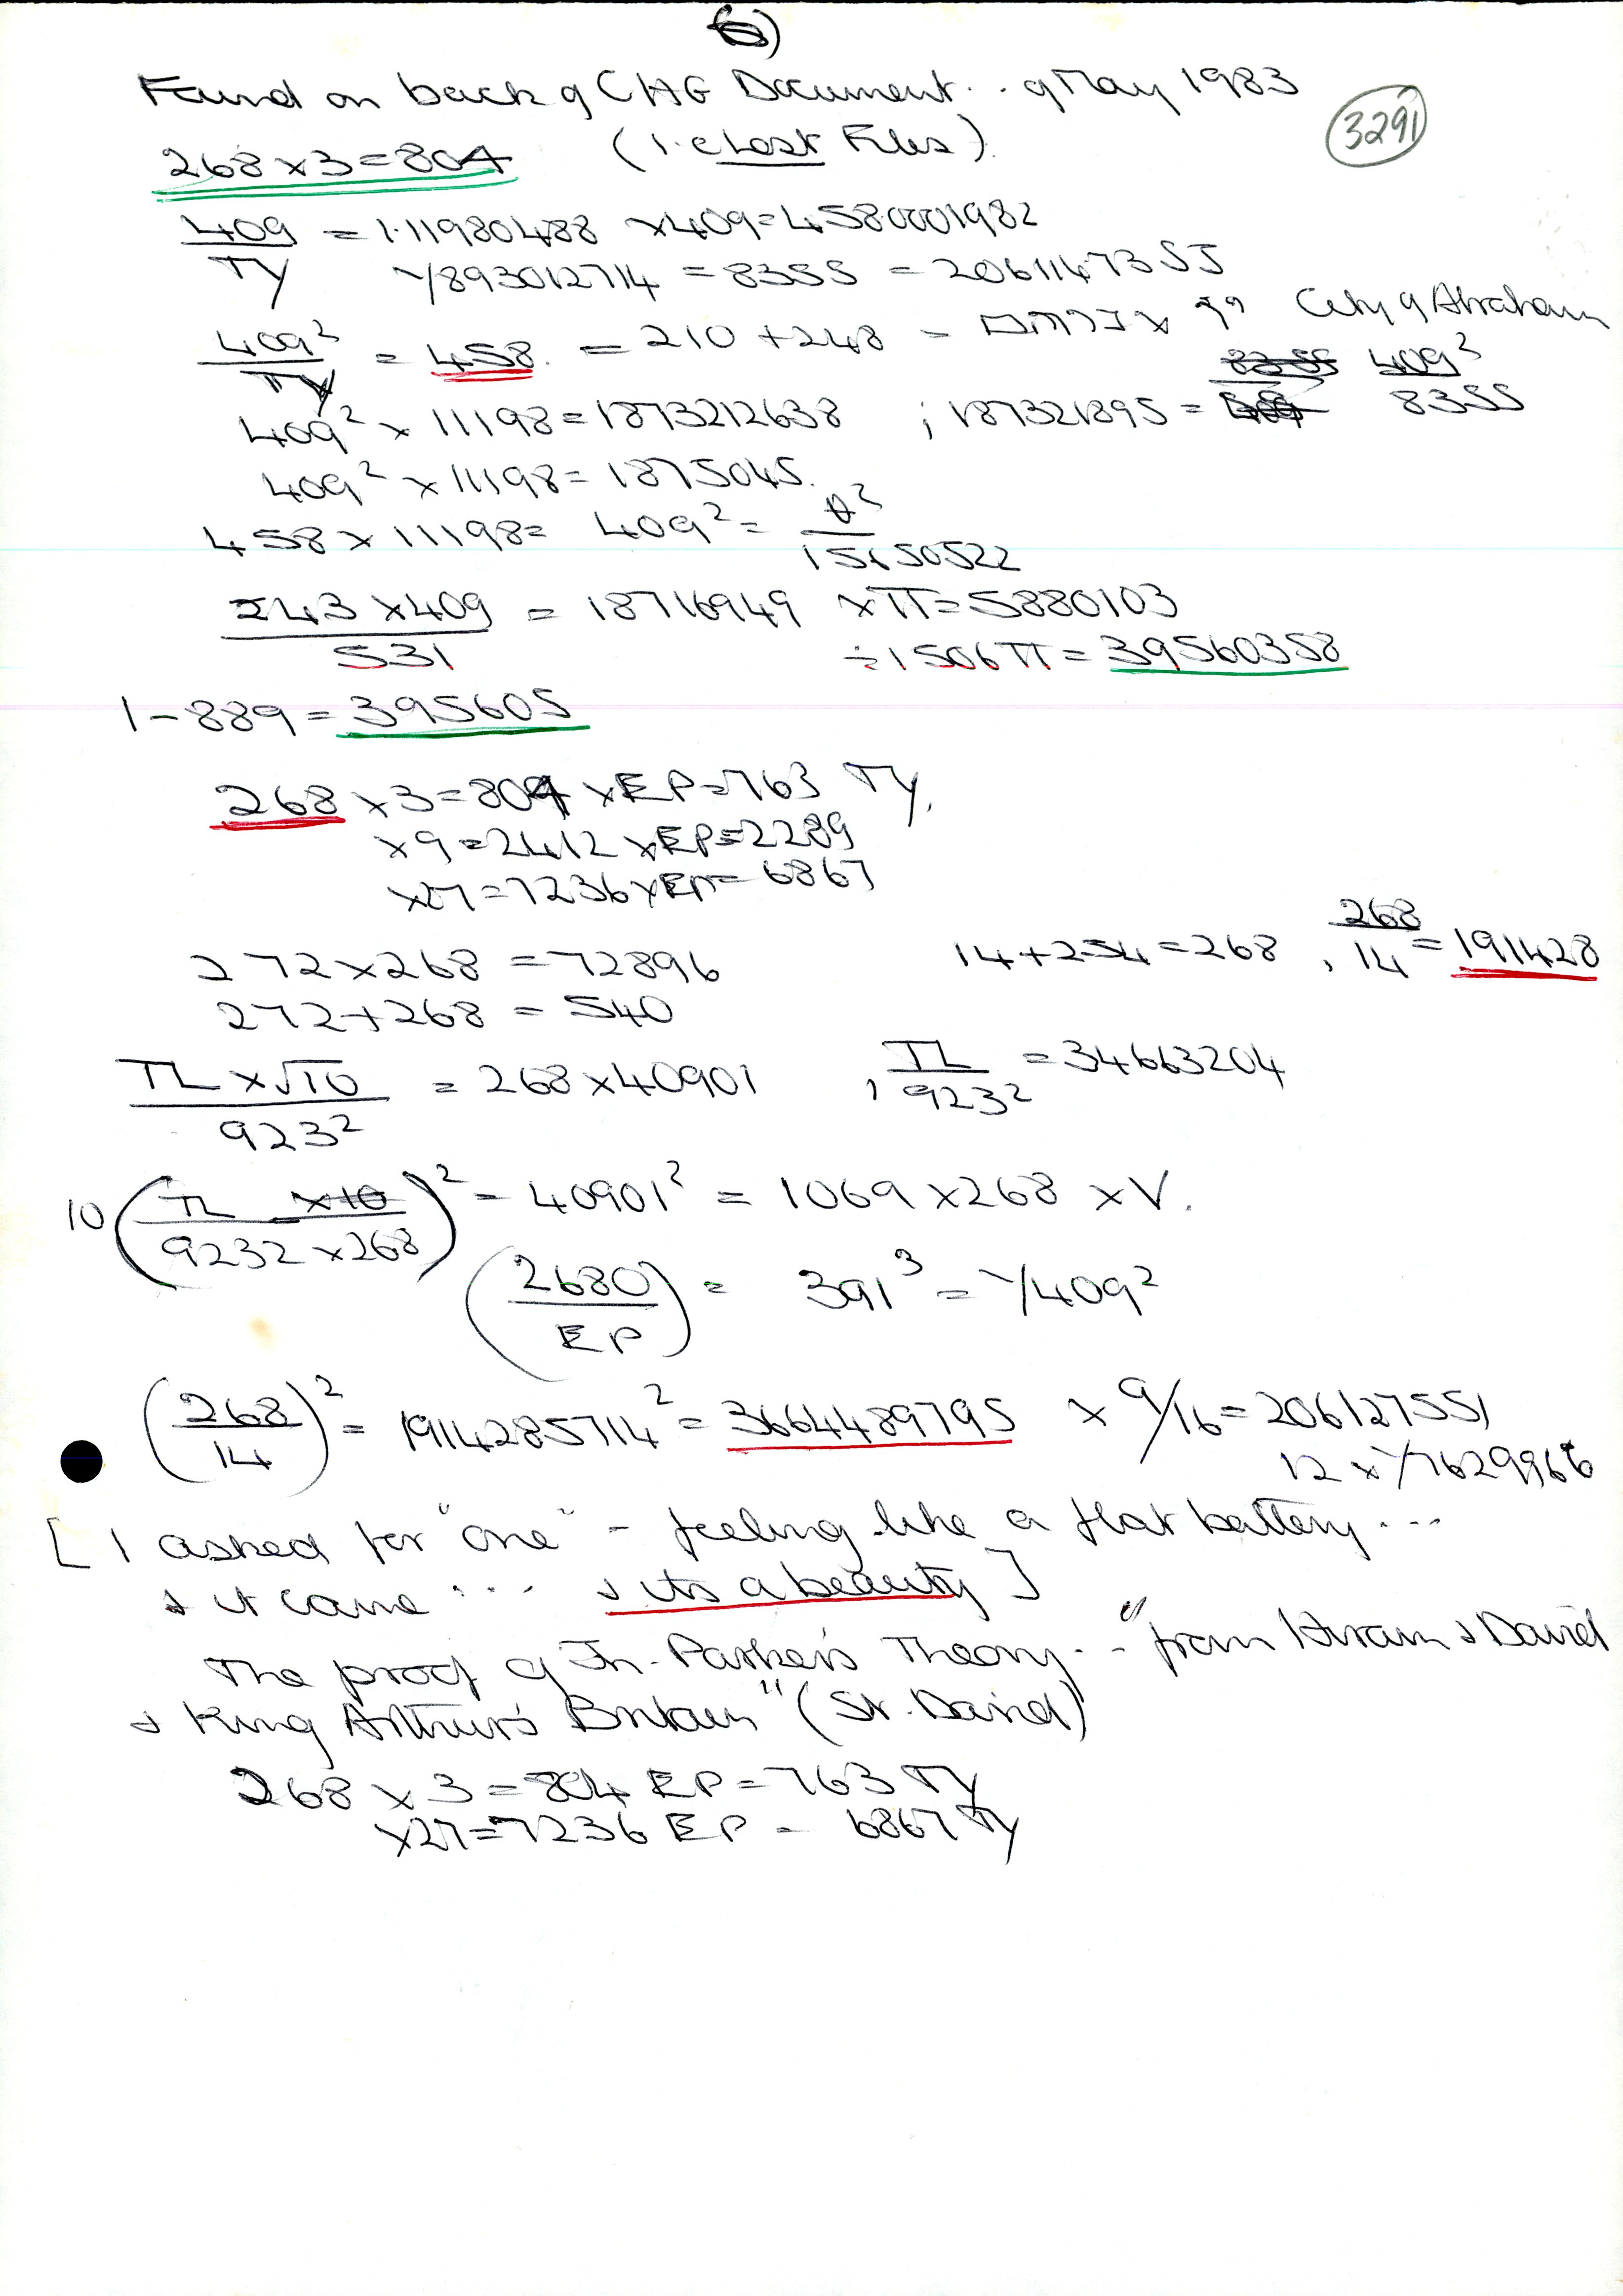 6)
Found on back of CHG Document... 9 May 1983
3291
(i.e Lost Files).
268 x 3 = 804
409/TY = 1.11980488 x 409 = 4580001982
1/893012714 = 8355 = 2061147355
409²/TY = 458. = 210 + 248 = אברהם עיר City of Abraham
409² x 11198 = 1873212638 ; 187321895 = 409²/8355
409² x 11198 = 1875045.
458 x 11198 = 409² = θ²/15650522
243 x 409/531 = 18716949 x π = 5880103
÷ 1506π = 39560358
1 - 889 = 395605
268 x 3 = 804 x EP = 763 TY.
x 9 = 2412 x EP = 2289
x 27 = 7236 x EP = 6867
272 x 268 = 72896
14 + 254 = 268 , 268/14 = 191428
272 + 268 = 540
TL x √10/923² = 268 x 40901 , TL/923² = 34663204
10 (TL x 10/9232 x 268)² = 40901² = 1069 x 268 x V.
(2680/EP) = 391³ = 1/409²
(268/14)² = 1914285714² = 3664489795 x 9/16 = 206127551
12 x 1/7629966
[ I asked for "one" - feeling like a flat battery...
& it came ... & its a beauty ]
The proof of Jn. Parker's Theory.. "from Hiram & David
& King Arthur's Britain" (St. David)
268 x 3 = 804 EP = 763 TY
x 27 = 7236 EP = 6867 TY